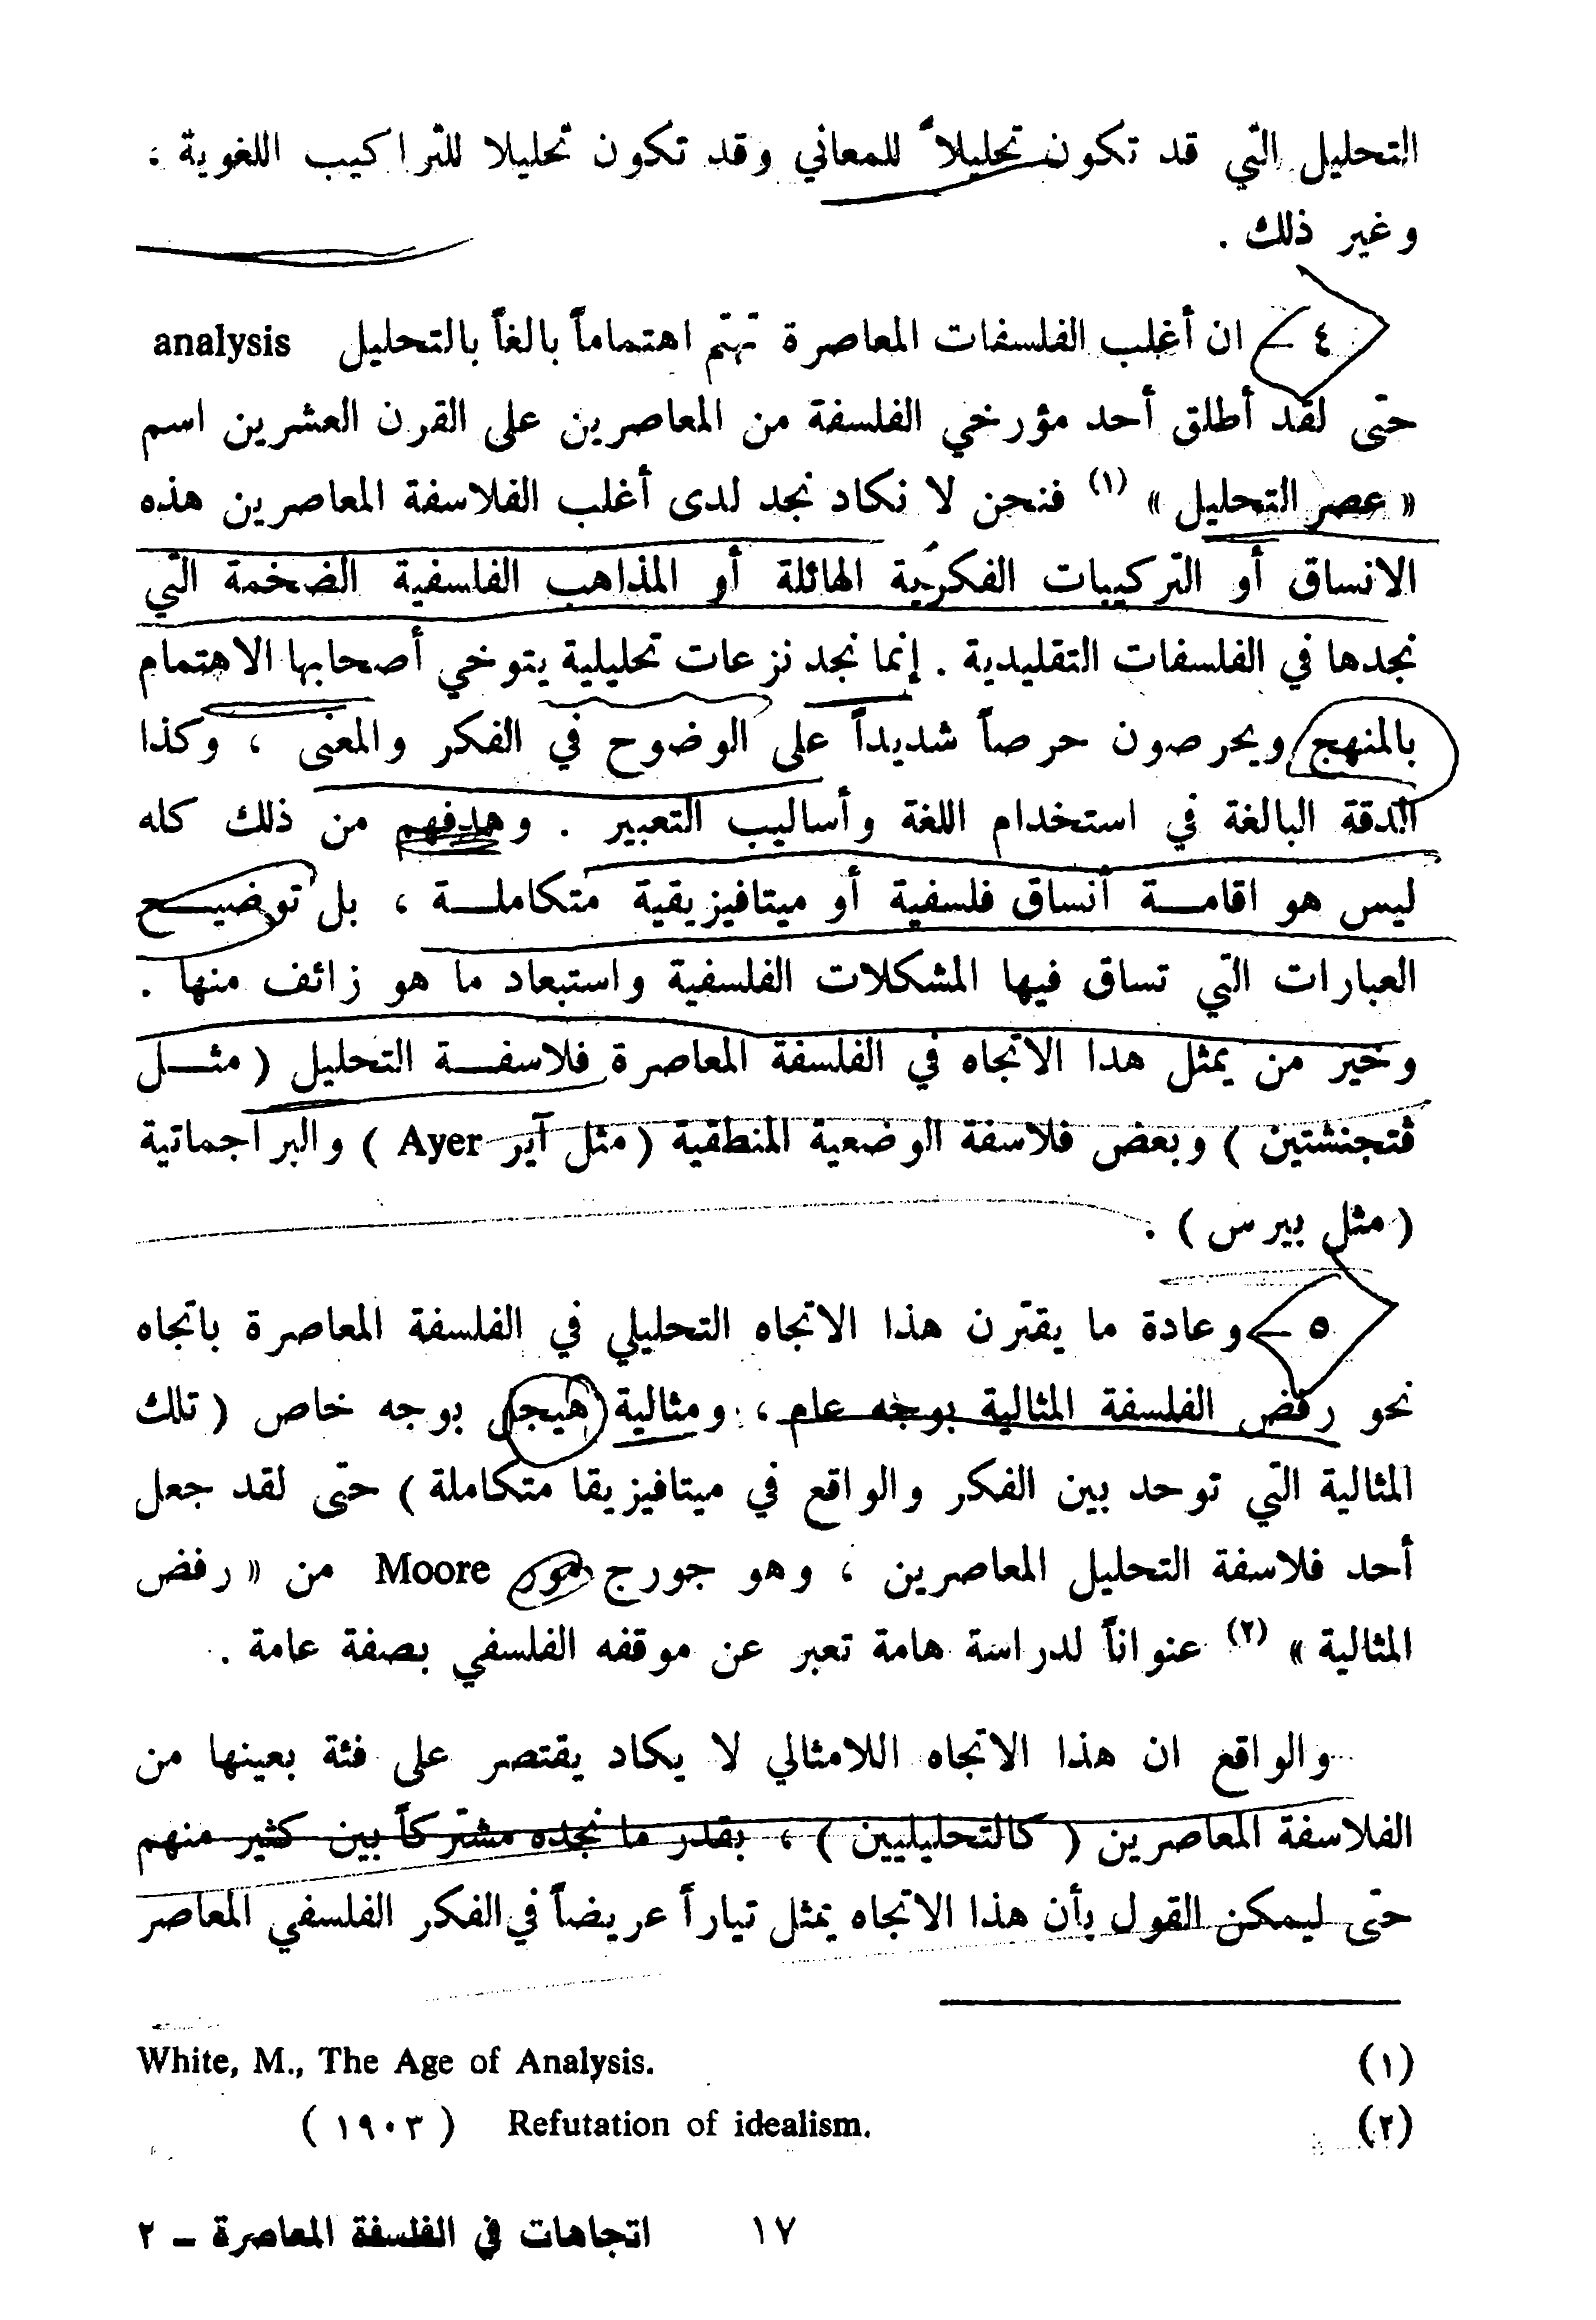 التحليل التي قد تكون تحليلاً للمعاني وقد تكون تحليلا للتراكيب اللغوية .
وغير ذلك .
٤ - ان أغلب الفلسفات المعاصرة تهتم اهتماماً بالغاً بالتحليل analysis
حتى لقد أطلق أحد مؤرخي الفلسفة من المعاصرين على القرن العشرين اسم
« عصر التحليل » (١) فنحن لا نكاد نجد لدى أغلب الفلاسفة المعاصرين هذه
الانساق أو التركيبات الفكرية الهائلة أو المذاهب الفلسفية الضخمة التي
نجدها في الفلسفات التقليدية . إنما نجد نزعات تحليلية يتوخي أصحابها الاهتمام
بالمنهج ويحرصون حرصاً شديداً على الوضوح في الفكر والمعنى ، وكذا
الدقة البالغة في استخدام اللغة وأساليب التعبير . وهدفهم من ذلك كله
ليس هو اقامــة أنساق فلسفية أو ميتافيزيقية متكاملــة ، بل توضيــح
العبارات التي تساق فيها المشكلات الفلسفية واستبعاد ما هو زائف منها .
وخير من يمثل هدا الاتجاه في الفلسفة المعاصرة فلاسفــة التحليل ( مثــل
فتجنشتين ) وبعض فلاسفة الوضعية المنطقية ( مثل آير Ayer ) والبراجماتية
( مثل بيرس ) .
٥ - وعادة ما يقترن هذا الاتجاه التحليلي في الفلسفة المعاصرة باتجاه
نحو رفض الفلسفة المثالية بوجه عام ، ومثالية هيجل بوجه خاص ( تلك
المثالية التي توحد بين الفكر والواقع في ميتافيزيقا متكاملة ) حتى لقد جعل
أحد فلاسفة التحليل المعاصرين ، وهو جورج مور Moore من « رفض
المثالية » (٢) عنواناً لدراسة هامة تعبر عن موقفه الفلسفي بصفة عامة .
والواقع ان هذا الاتجاه اللامثالي لا يكاد يقتصر على فئة بعينها من
الفلاسفة المعاصرين ( كالتحليليين ) ، بقدر ما نجده مشتركاً بين كثير منهم
حتى ليمكن القول بأن هذا الاتجاه يمثل تياراً عريضاً في الفكر الفلسفي المعاصر
(١) White, M., The Age of Analysis.
(٢) Refutation of idealism. ( ١٩٠٣ )
١٧ اتجاهات في الفلسفة المعاصرة - ٢